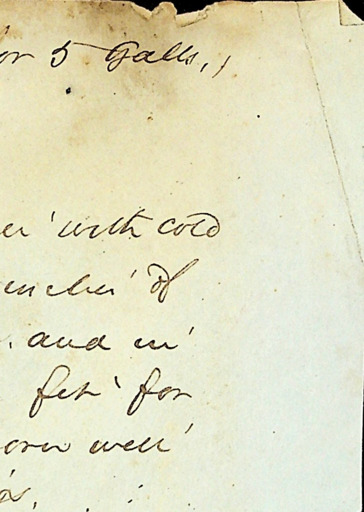 or 5 Galls,,
er with cold
inches of
. and in
for
orn well